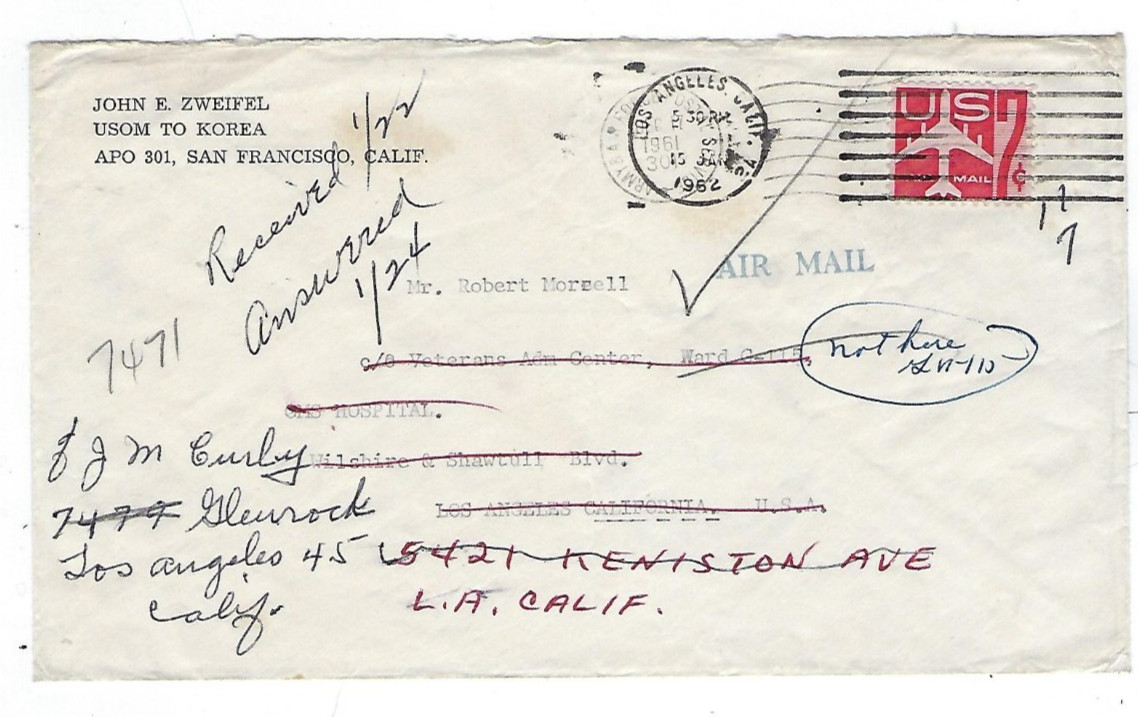 JOHN E. ZWEIFEL
USOM TO KOREA
APO 301, SAN FRANCISCO, CALIF.
LOS ANGELES, CALIF.
5 30 PM
15 JAN
1962
1961
30
ARMY & AIR
US
7¢
AIR MAIL
17
7
Received 1/22
Answered
1/24
AIR MAIL
Mr. Robert Morsell
7471
c/o Veterans Adm Center, Ward C-115,
not here
HOSPITAL.
J M Curby
Wilshire & Shawtull Blvd.
7477 Glenrock
LOS ANGELES CALIFORNIA. U.S.A.
Los angeles 45
5421 KENISTON AVE
Calif.
L.A. CALIF.